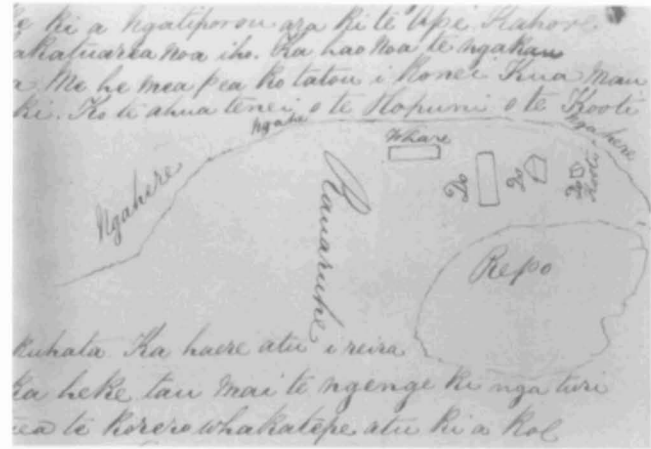 ki a Ngatiporou ara ki te Kahore
akatuarea noa iho. Ka hao noa te ngakau
a Me he mea pea ko tatou i konei Kua mau
ki. Ko te ahua tenei o te Hopuni o te Kooti
Ngahere
Ngahere
Whare
Do
Do
Do
Kooti
Ngahere
Rauaruhe
Repo
kuhata Ka haere atu i reira
Ka heke tau mai te ngenge ki nga turi
te korero whakatepe atu ki a koe